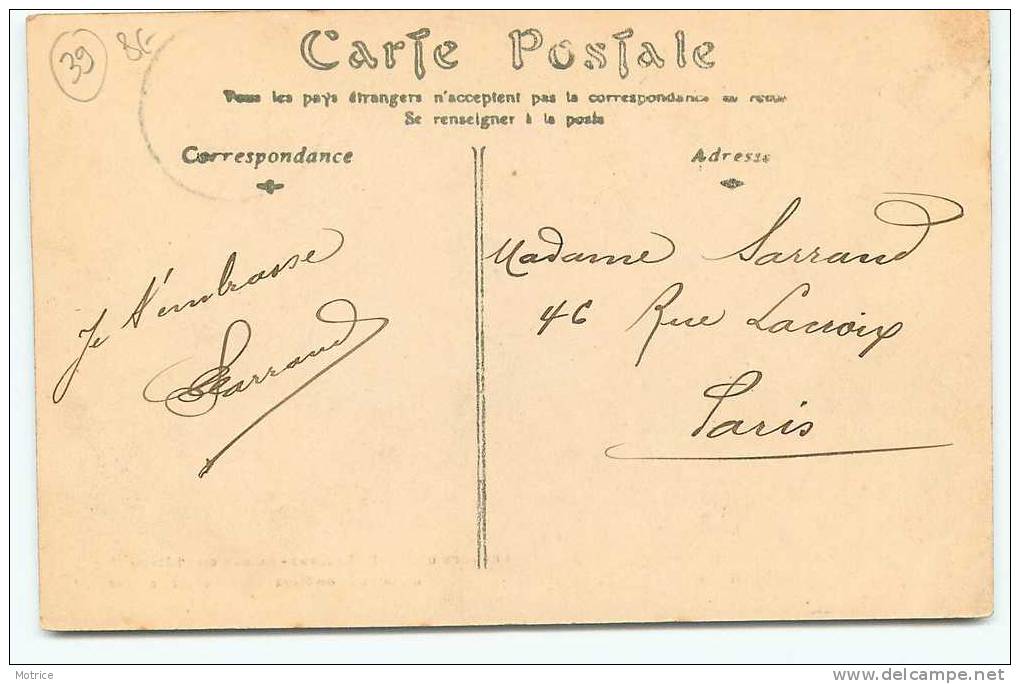 39
Carte Postale
Tous les pays étrangers n'acceptent pas la correspondance au recto
Se renseigner à la poste
Correspondance
Je t'embrasse
Sarrand
Adresse
Madame Sarrand
46 Rue Lacroix
Paris
Motrice
delcampe.net